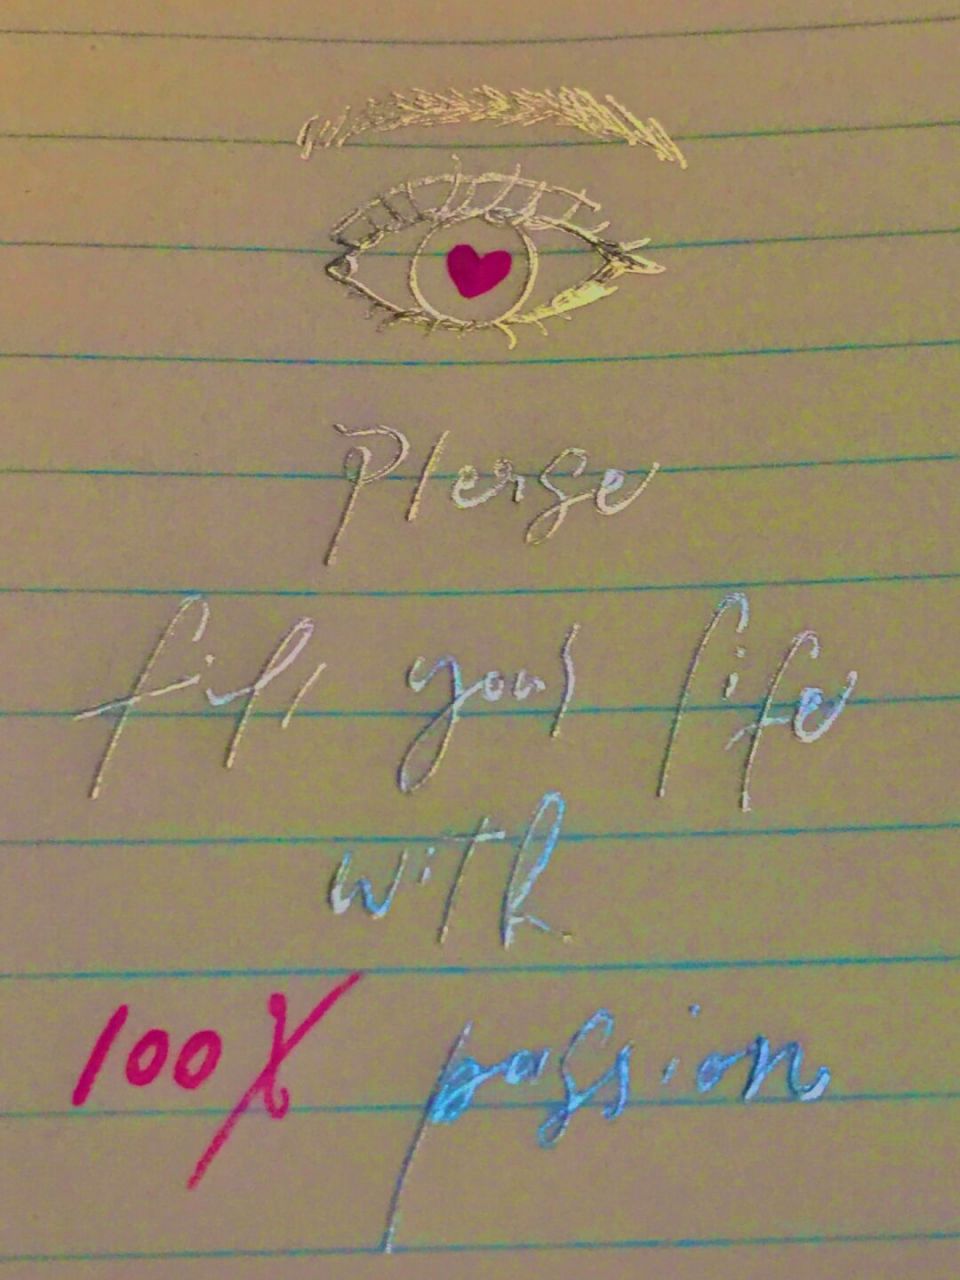 Please
fill your life
with
100% passion